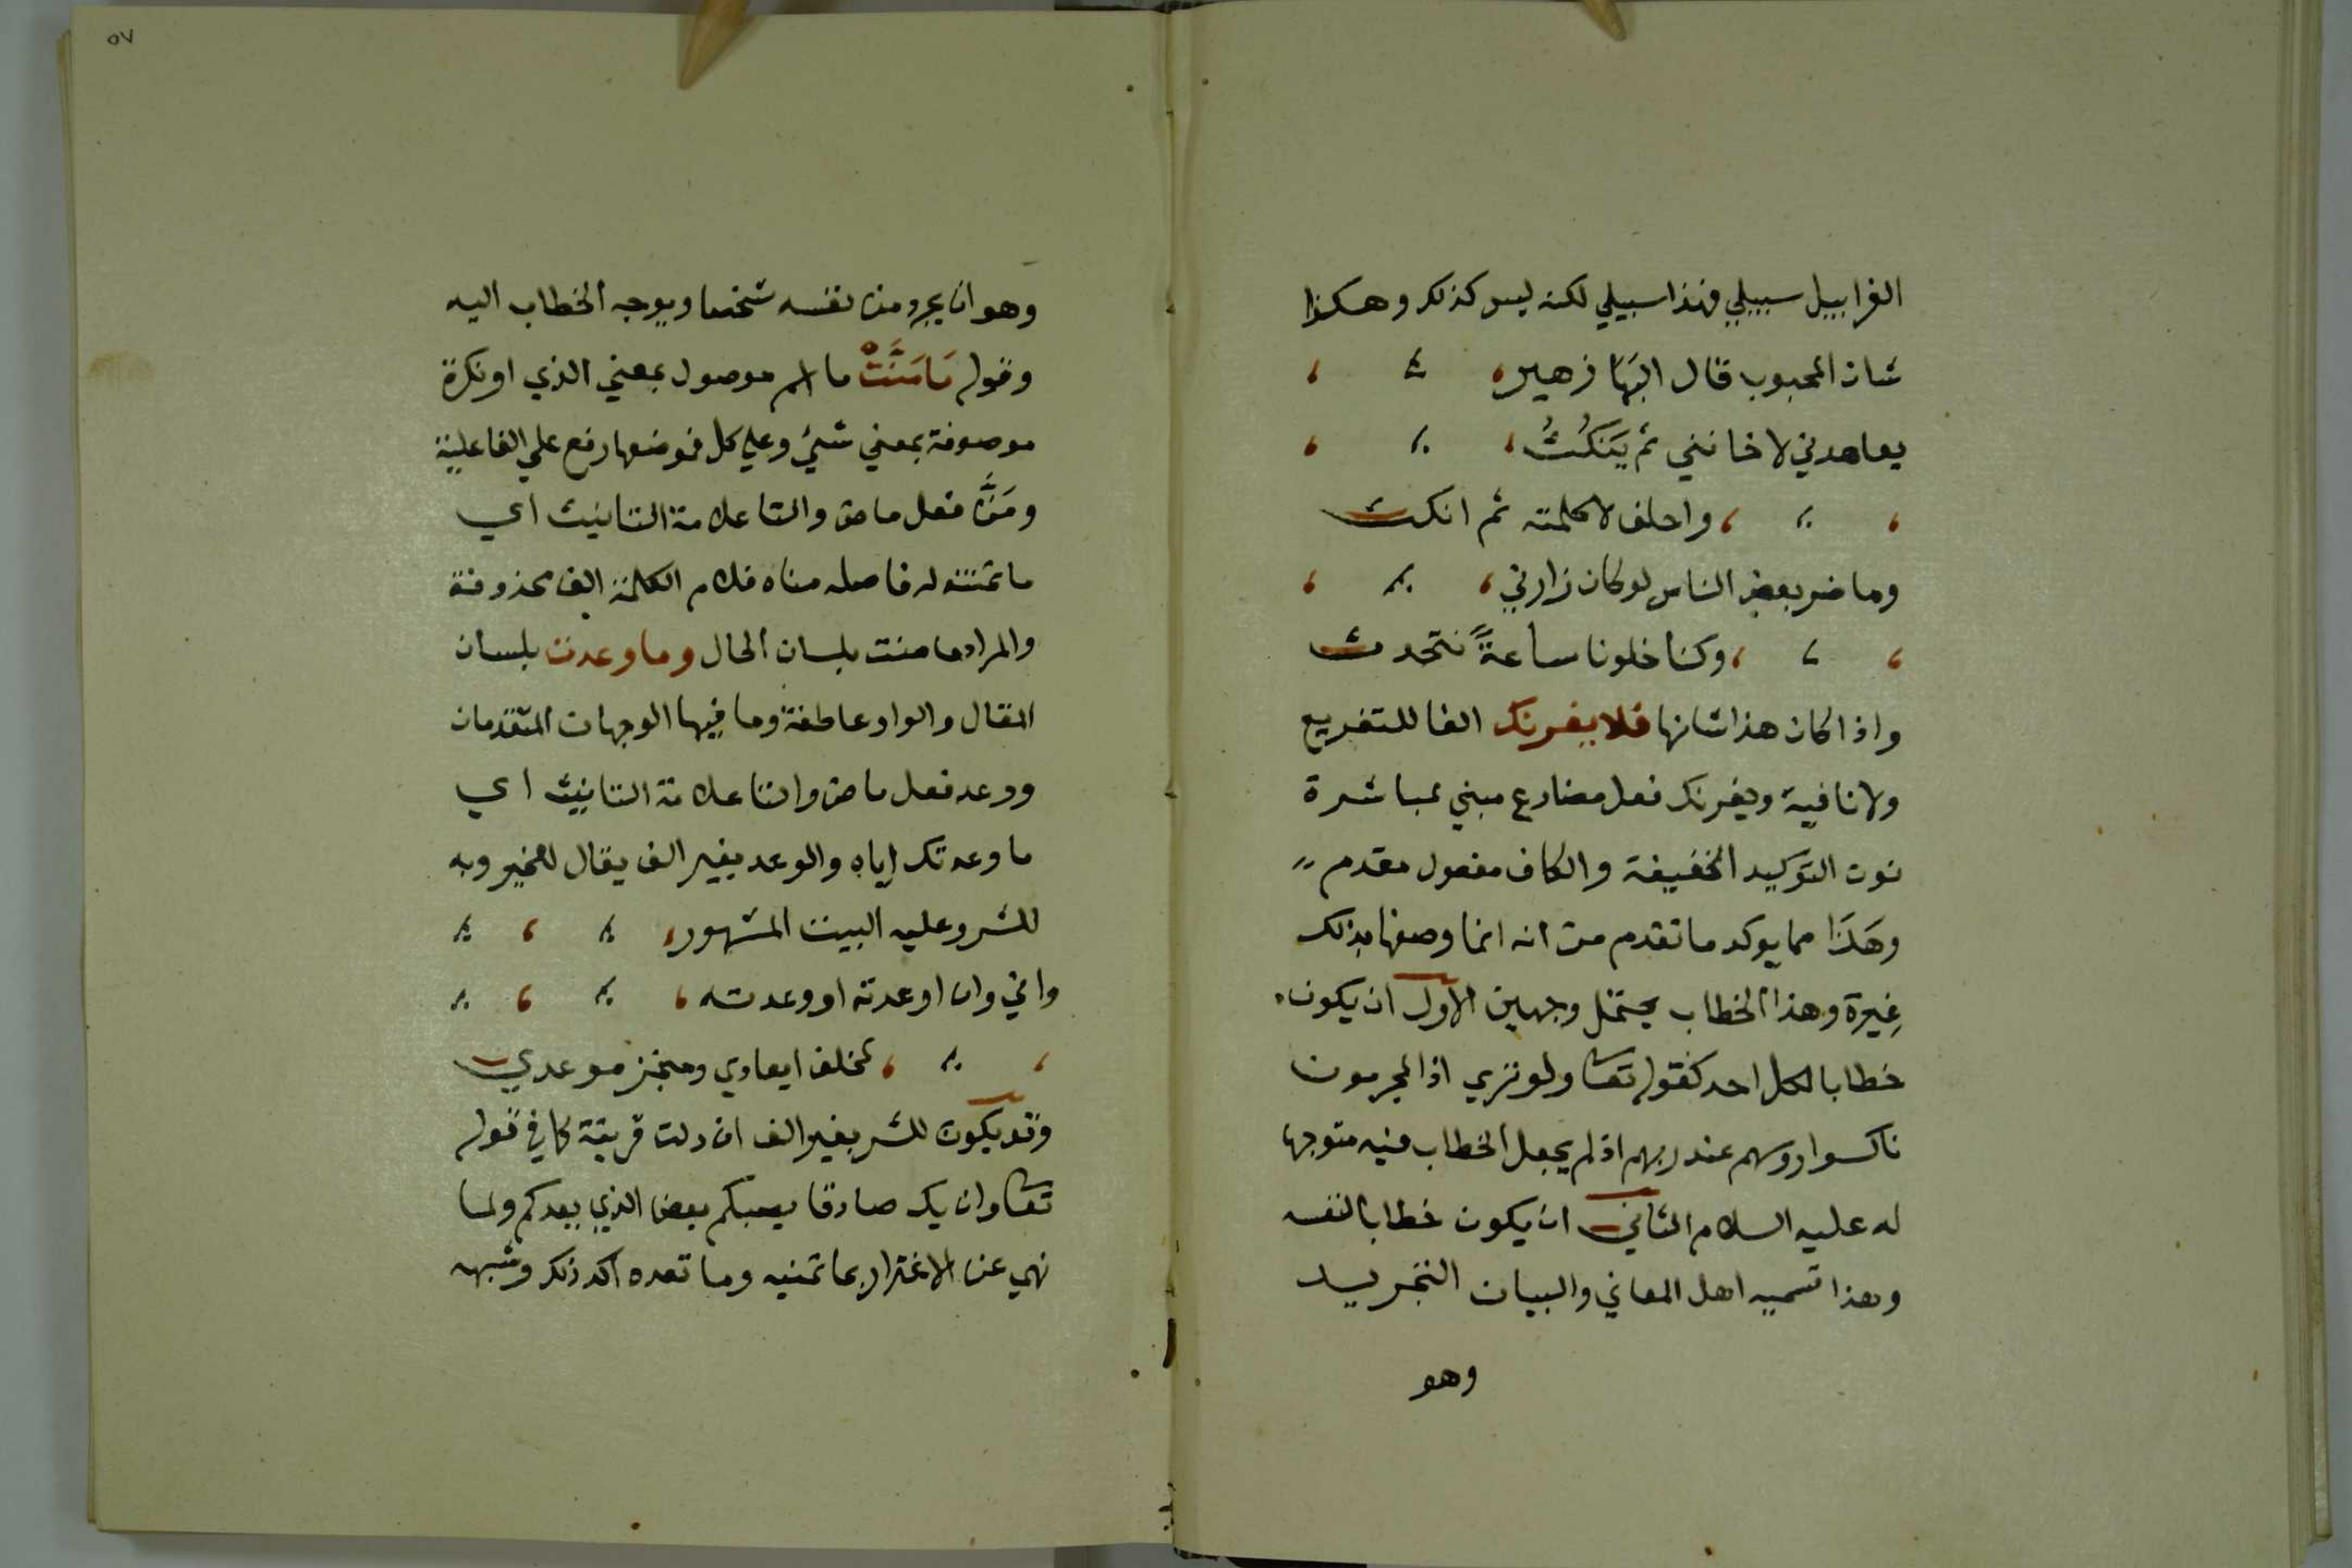 الغرابيل سبيلي فهذا سبيلي لكنه ليس كذلك وهكذا
شان المحبوب قال البها زهير
يعاهدني لا خانني ثم يَنكُثُ
واحلف لا كلمته ثم انكث
وما ضر بعض الناس لو كان زارني
وكنا خلونا ساعةً نتحدث
واذا كان هذا شانها فلا يغرنك الفا للتفريع
ولا نافية ويغرنك فعل مضارع مبني بمباشرة
نون التوكيد الخفيفة والكاف مفعول مقدم
وهَذَا مما يوكد ما تقدم من انه انما وصفها بذلك
غِيرة وهذا الخطاب يحتمل وجهين الاول ان يكون
خطابا لكل احد كقوله تعا ولو تري اذ المجرمون
ناكسوا روسهم عند ربهم اذ لم يجعل الخطاب فيه متوجها
له عليه السلام الثاني ان يكون خطابا لنفسه
وهذا تسميه اهل المعاني والبيان التجريد
وهو
٥٧
وهو ان يجرد من نفسه شخصا ويوجه الخطاب اليه
وقوله مَا مَنَّتْ ما اسم موصول بمعني الذي او نكرة
موصوفة بمعني شيئ وعلي كل فموضعها رفع علي الفاعلية
ومَنَّ فعل ماض والتا علامة التانيث اي
ما تمنته له فاصله مناه فلام الكلمة الف محذوفة
والمراد ما منت بلسان الحال وما وعدت بلسان
المقال والواو عاطفة وما فيها الوجهان المتقدمان
ووعد فعل ماض والتا علامة التانيث اي
ما وعدتك اياه والوعد بغير الف يقال للخير وبه
للشر وعليه البيت المشهور
واني وان اوعدته او وعدته
لمخلف ايعادي ومنجز موعدي
وقد يكون للشر بغير الف ان دلت قرينة كما في قوله
تعا وان يك صادقا يصبكم بعض الذي يعدكم ولما
نهي عن الاغترار بما تمنيه وما تعده اكد ذلك وشبهه